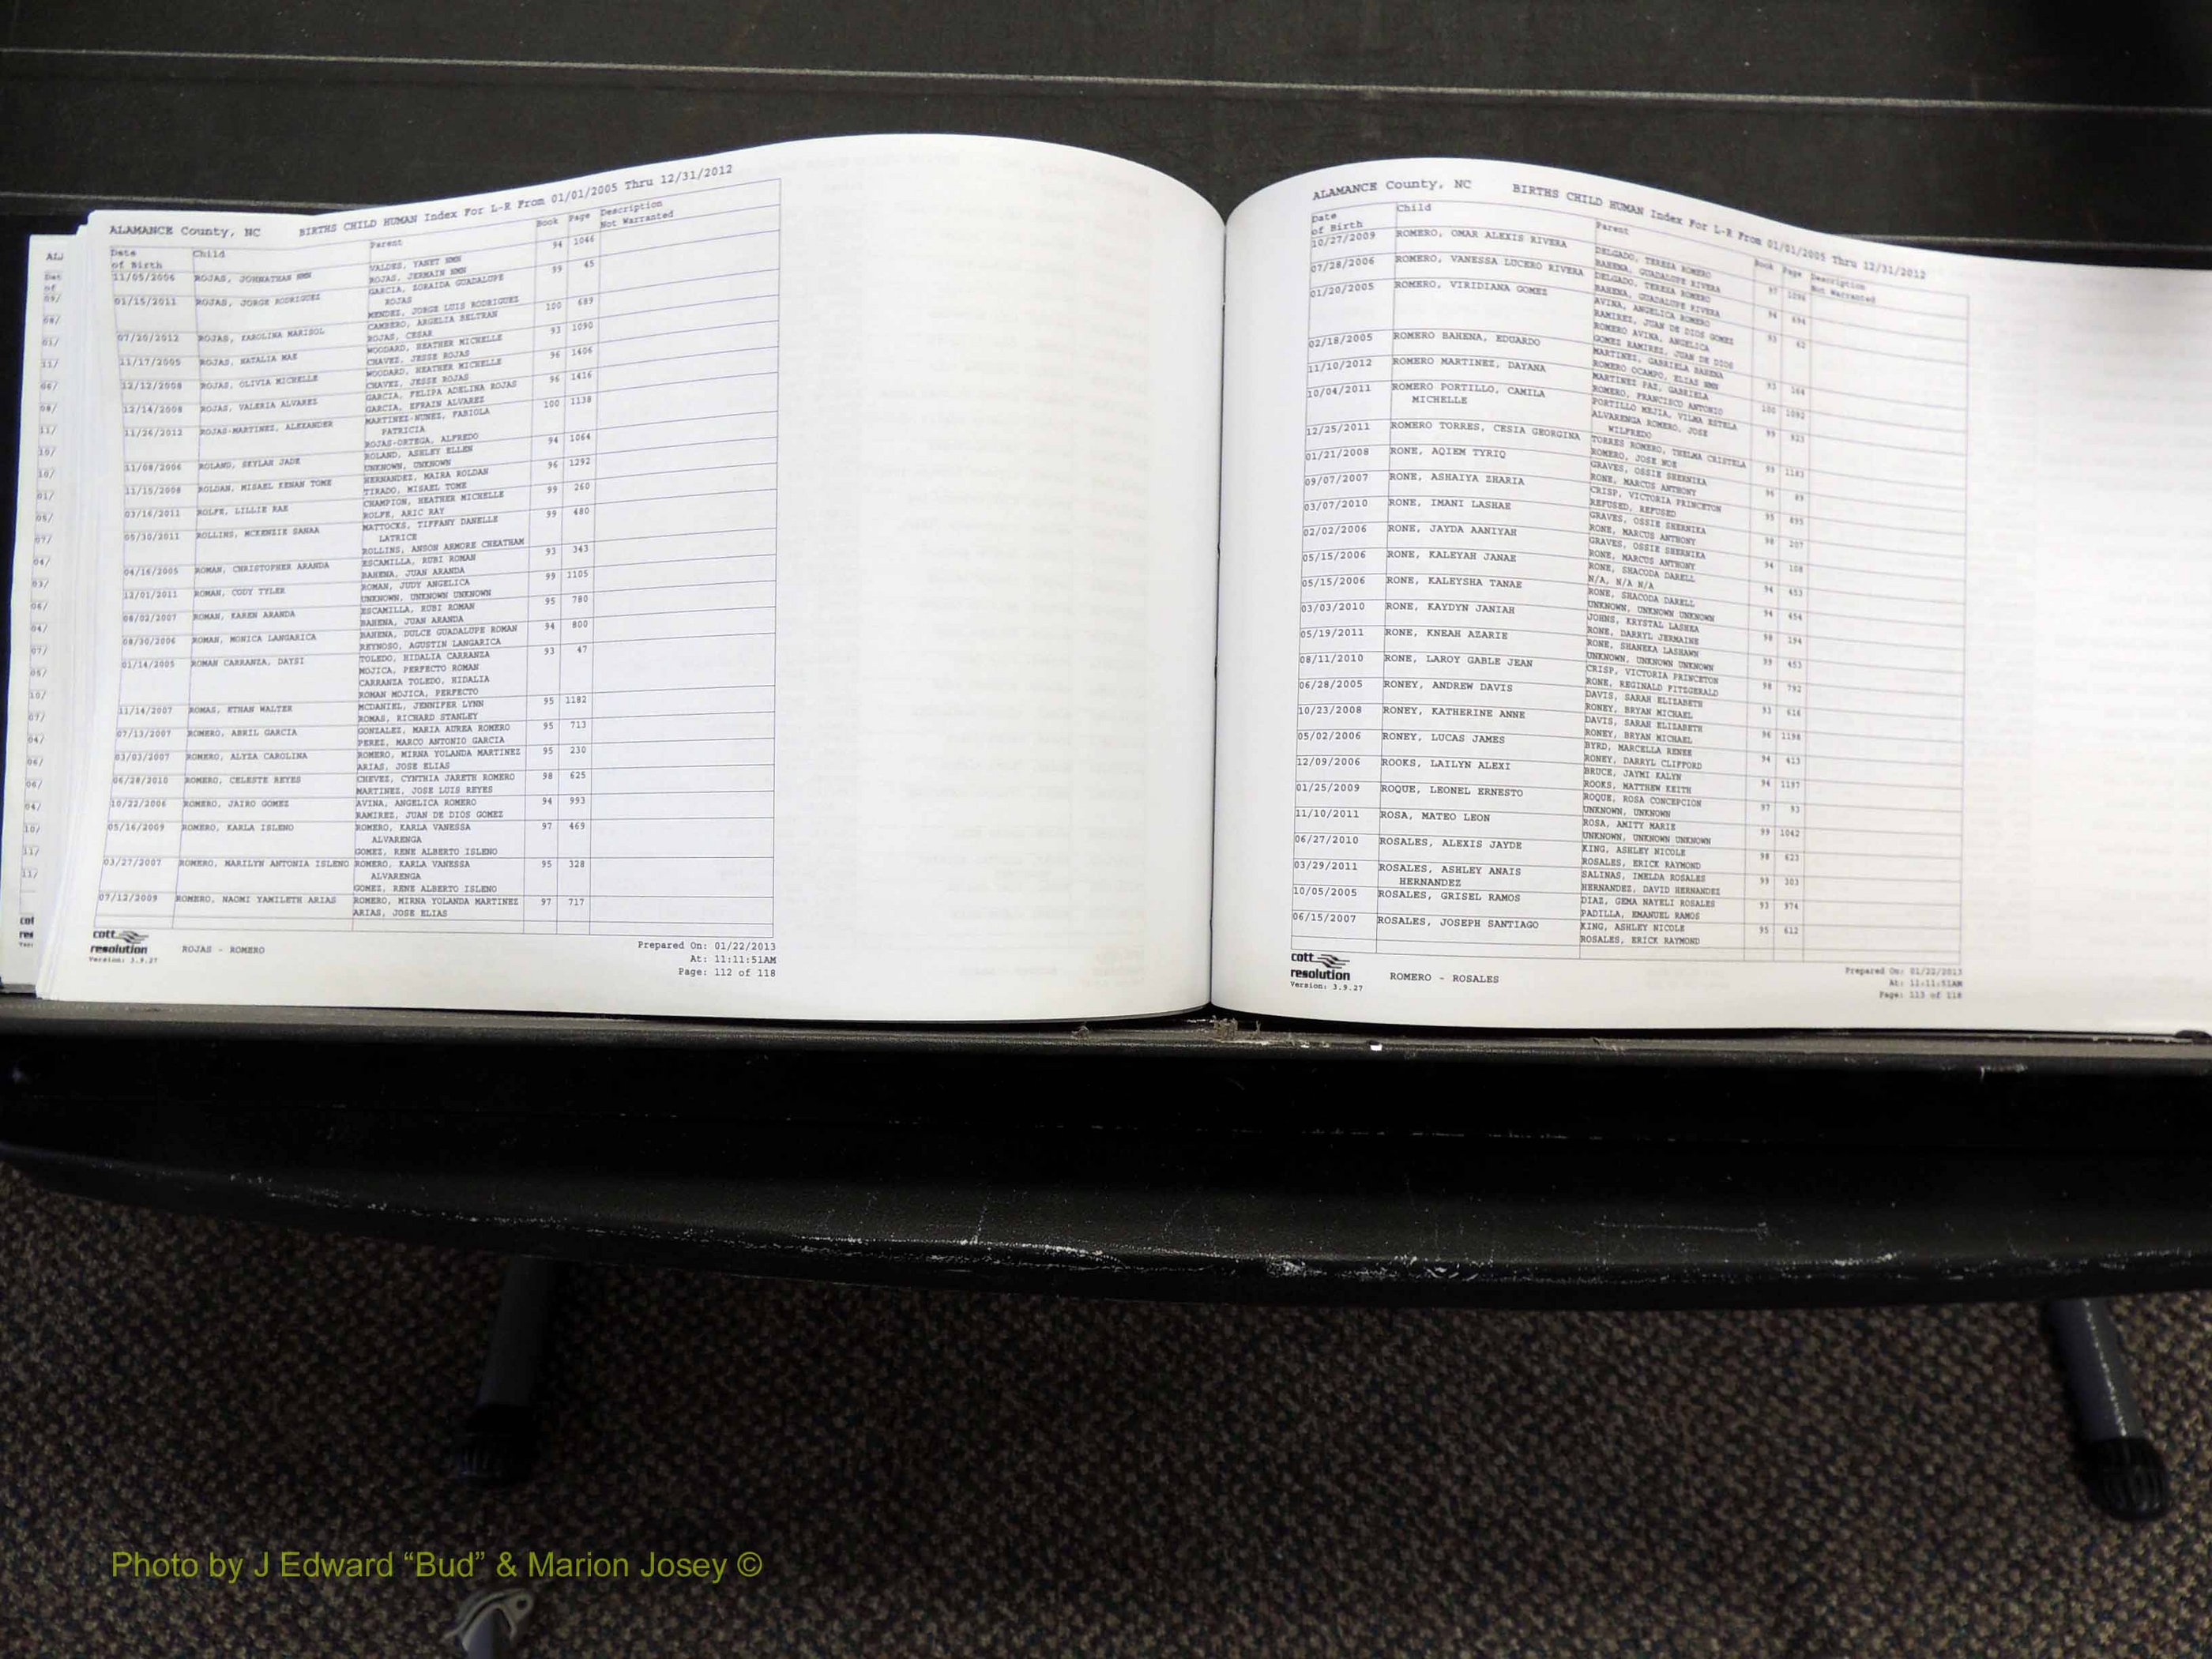 ALAMANCE County, NC BIRTHS CHILD HUMAN Index For L-R From 01/01/2005 Thru 12/31/2012
Date of Birth Child Parent Book Page Description Not Warranted
11/05/2006 ROJAS, JOHNATHAN NMN VALDES, YANET NMN 94 1046
ROJAS, JERMAIN NMN
01/15/2011 ROJAS, JORGE RODRIGUEZ GARCIA, ZORAIDA GUADALUPE 99 45
ROJAS
MENDEZ, JORGE LUIS RODRIGUEZ
07/20/2012 ROJAS, KAROLINA MARISOL CAMBERO, ARGELIA BELTRAN 100 689
ROJAS, CESAR
11/17/2005 ROJAS, NATALIA MAE WOODARD, HEATHER MICHELLE 93 1090
CHAVEZ, JESSE ROJAS
12/12/2008 ROJAS, OLIVIA MICHELLE WOODARD, HEATHER MICHELLE 96 1406
CHAVEZ, JESSE ROJAS
12/14/2008 ROJAS, VALERIA ALVAREZ GARCIA, FELIPA ADELINA ROJAS 96 1416
GARCIA, EFRAIN ALVAREZ
11/26/2012 ROJAS-MARTINEZ, ALEXANDER MARTINEZ-NUNEZ, FABIOLA 100 1138
PATRICIA
ROJAS-ORTEGA, ALFREDO
11/08/2006 ROLAND, SKYLAR JADE ROLAND, ASHLEY ELLEN 94 1064
UNKNOWN, UNKNOWN
11/15/2008 ROLDAN, MISAEL KENAN TOME HERNANDEZ, MAIRA ROLDAN 96 1292
TIRADO, MISAEL TOME
03/16/2011 ROLFE, LILLIE RAE CHAMPION, HEATHER MICHELLE 99 260
ROLFE, ARIC RAY
05/30/2011 ROLLINS, MCKENZIE SANAA MATTOCKS, TIFFANY DANELLE 99 480
LATRICE
ROLLINS, ANSON ARMORE CHEATHAM
04/16/2005 ROMAN, CHRISTOPHER ARANDA ESCAMILLA, RUBI ROMAN 93 343
BAHENA, JUAN ARANDA
12/01/2011 ROMAN, CODY TYLER ROMAN, JUDY ANGELICA 99 1105
UNKNOWN, UNKNOWN UNKNOWN
08/02/2007 ROMAN, KAREN ARANDA ESCAMILLA, RUBI ROMAN 95 780
BAHENA, JUAN ARANDA
08/30/2006 ROMAN, MONICA LANGARICA BAHENA, DULCE GUADALUPE ROMAN 94 800
REYNOSO, AGUSTIN LANGARICA
01/14/2005 ROMAN CARRANZA, DAYSI TOLEDO, HIDALIA CARRANZA 93 47
MOJICA, PERFECTO ROMAN
CARRANZA TOLEDO, HIDALIA
ROMAN MOJICA, PERFECTO
11/14/2007 ROMAS, ETHAN WALTER MCDANIEL, JENNIFER LYNN 95 1182
ROMAS, RICHARD STANLEY
07/13/2007 ROMERO, ABRIL GARCIA GONZALEZ, MARIA AUREA ROMERO 95 713
PEREZ, MARCO ANTONIO GARCIA
03/03/2007 ROMERO, ALYZA CAROLINA ROMERO, MIRNA YOLANDA MARTINEZ 95 230
ARIAS, JOSE ELIAS
06/28/2010 ROMERO, CELESTE REYES CHEVEZ, CYNTHIA JARETH ROMERO 98 625
MARTINEZ, JOSE LUIS REYES
10/22/2006 ROMERO, JAIRO GOMEZ AVINA, ANGELICA ROMERO 94 993
RAMIREZ, JUAN DE DIOS GOMEZ
05/16/2009 ROMERO, KARLA ISLENO ROMERO, KARLA VANESSA 97 469
ALVARENGA
GOMEZ, RENE ALBERTO ISLENO
03/27/2007 ROMERO, MARILYN ANTONIA ISLENO ROMERO, KARLA VANESSA 95 328
ALVARENGA
GOMEZ, RENE ALBERTO ISLENO
07/12/2009 ROMERO, NAOMI YAMILETH ARIAS ROMERO, MIRNA YOLANDA MARTINEZ 97 717
ARIAS, JOSE ELIAS
cott resolution
Version: 3.9.27
ROJAS - ROMERO
Prepared On: 01/22/2013
At: 11:11:51AM
Page: 112 of 118
ALAMANCE County, NC BIRTHS CHILD HUMAN Index For L-R From 01/01/2005 Thru 12/31/2012
Date of Birth Child Parent Book Page Description Not Warranted
10/27/2009 ROMERO, OMAR ALEXIS RIVERA DELGADO, TERESA ROMERO 97 1096
BAHENA, GUADALUPE RIVERA
07/28/2006 ROMERO, VANESSA LUCERO RIVERA DELGADO, TERESA ROMERO 94 694
BAHENA, GUADALUPE RIVERA
01/20/2005 ROMERO, VIRIDIANA GOMEZ AVINA, ANGELICA ROMERO 93 62
RAMIREZ, JUAN DE DIOS GOMEZ
ROMERO AVINA, ANGELICA
GOMEZ RAMIREZ, JUAN DE DIOS
02/18/2005 ROMERO BAHENA, EDUARDO MARTINEZ, GABRIELA BAHENA 93 164
ROMERO OCAMPO, ELIAS NMN
11/10/2012 ROMERO MARTINEZ, DAYANA MARTINEZ PAZ, GABRIELA 100 1092
ROMERO, FRANCISCO ANTONIO
10/04/2011 ROMERO PORTILLO, CAMILA PORTILLO MEJIA, VILMA ESTELA 99 923
MICHELLE ALVARENGA ROMERO, JOSE
WILFREDO
12/25/2011 ROMERO TORRES, CESIA GEORGINA TORRES ROMERO, THELMA CRISTELA 99 1183
ROMERO, JOSE NOE
01/21/2008 RONE, AQIEM TYRIQ GRAVES, OSSIE SHERNIKA 96 89
RONE, MARCUS ANTHONY
09/07/2007 RONE, ASHAIYA ZHARIA CRISP, VICTORIA PRINCETON 95 895
REFUSED, REFUSED
03/07/2010 RONE, IMANI LASHAE GRAVES, OSSIE SHERNIKA 98 207
RONE, MARCUS ANTHONY
02/02/2006 RONE, JAYDA AANIYAH GRAVES, OSSIE SHERNIKA 94 108
RONE, MARCUS ANTHONY
05/15/2006 RONE, KALEYAH JANAE RONE, SHACODA DARELL 94 453
N/A, N/A N/A
05/15/2006 RONE, KALEYSHA TANAE RONE, SHACODA DARELL 94 454
UNKNOWN, UNKNOWN UNKNOWN
03/03/2010 RONE, KAYDYN JANIAH JOHNS, KRYSTAL LASHEA 98 194
RONE, DARRYL JERMAINE
05/19/2011 RONE, KNEAH AZARIE RONE, SHANEKA LASHAWN 99 453
UNKNOWN, UNKNOWN UNKNOWN
08/11/2010 RONE, LAROY GABLE JEAN CRISP, VICTORIA PRINCETON 98 792
RONE, REGINALD FITZGERALD
06/28/2005 RONEY, ANDREW DAVIS DAVIS, SARAH ELIZABETH 93 616
RONEY, BRYAN MICHAEL
10/23/2008 RONEY, KATHERINE ANNE DAVIS, SARAH ELIZABETH 96 1198
RONEY, BRYAN MICHAEL
05/02/2006 RONEY, LUCAS JAMES BYRD, MARCELLA RENEE 94 413
RONEY, DARRYL CLIFFORD
12/09/2006 ROOKS, LAILYN ALEXI BRUCE, JAYMI KALYN 94 1197
ROOKS, MATTHEW KEITH
01/25/2009 ROQUE, LEONEL ERNESTO ROQUE, ROSA CONCEPCION 97 93
UNKNOWN, UNKNOWN
11/10/2011 ROSA, MATEO LEON ROSA, AMITY MARIE 99 1042
UNKNOWN, UNKNOWN UNKNOWN
06/27/2010 ROSALES, ALEXIS JAYDE KING, ASHLEY NICOLE 98 623
ROSALES, ERICK RAYMOND
03/29/2011 ROSALES, ASHLEY ANAIS SALINAS, IMELDA ROSALES 99 303
HERNANDEZ HERNANDEZ, DAVID HERNANDEZ
10/05/2005 ROSALES, GRISEL RAMOS DIAZ, GEMA NAYELI ROSALES 93 974
PADILLA, EMANUEL RAMOS
06/15/2007 ROSALES, JOSEPH SANTIAGO KING, ASHLEY NICOLE 95 612
ROSALES, ERICK RAYMOND
cott resolution
Version: 3.9.27
ROMERO - ROSALES
Prepared On: 01/22/2013
At: 11:11:51AM
Page: 113 of 118
Photo by J Edward “Bud” & Marion Josey ©